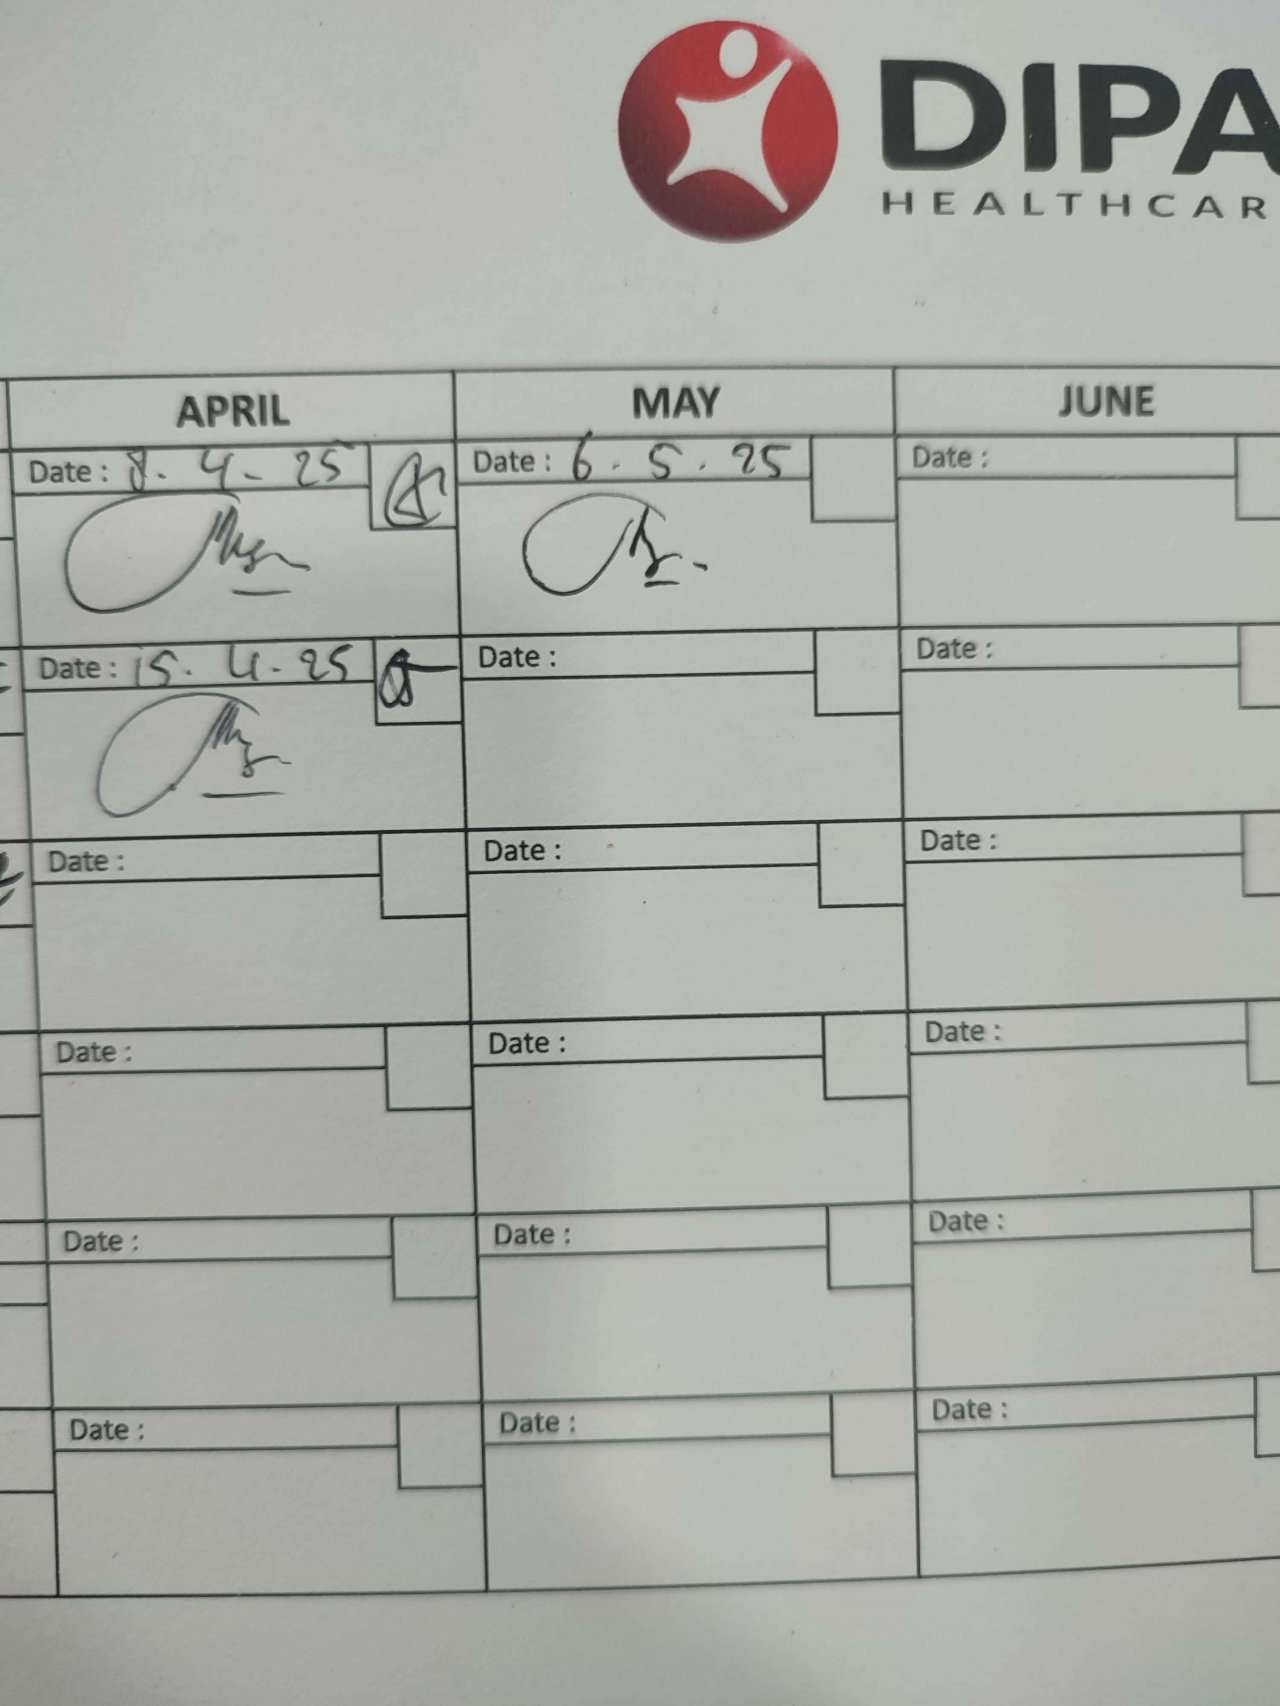 DIPA
HEALTHCAR
APRIL MAY JUNE
Date : 8. 4. 25 Date : 6. 5. 25 Date :
Date : 15. 4. 25 Date : Date :
Date : Date : Date :
Date : Date : Date :
Date : Date : Date :
Date : Date : Date :